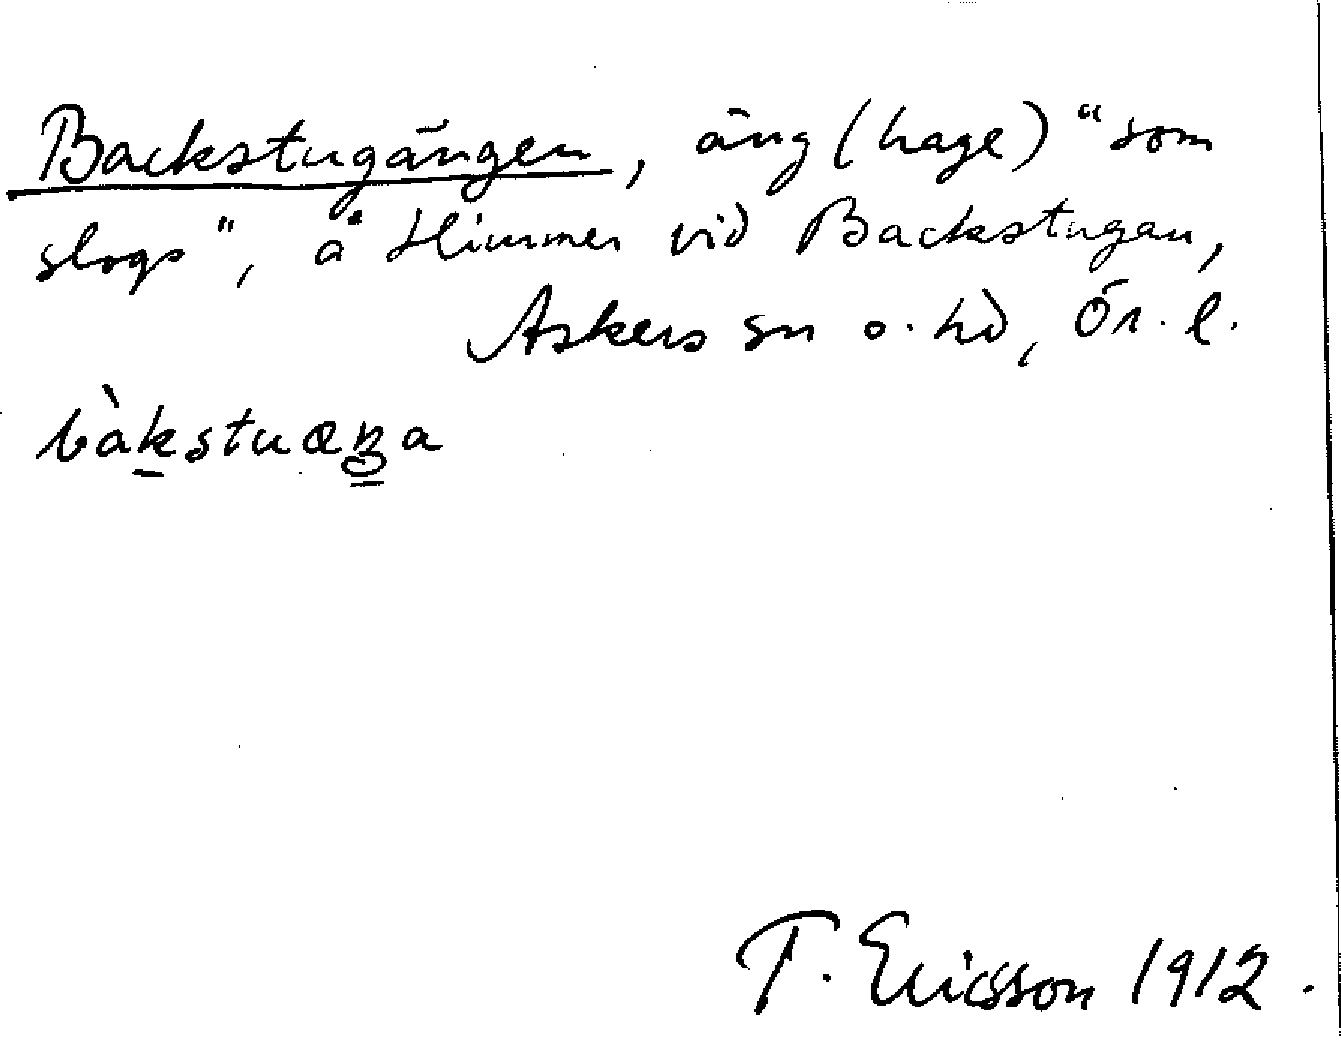 Backstugängen, äng (hage) "som
slogs", å Himmer vid Backstugan,
Askers sn o. hd, Ör. l.
bàkstuæŋa
T. Ericsson 1912.